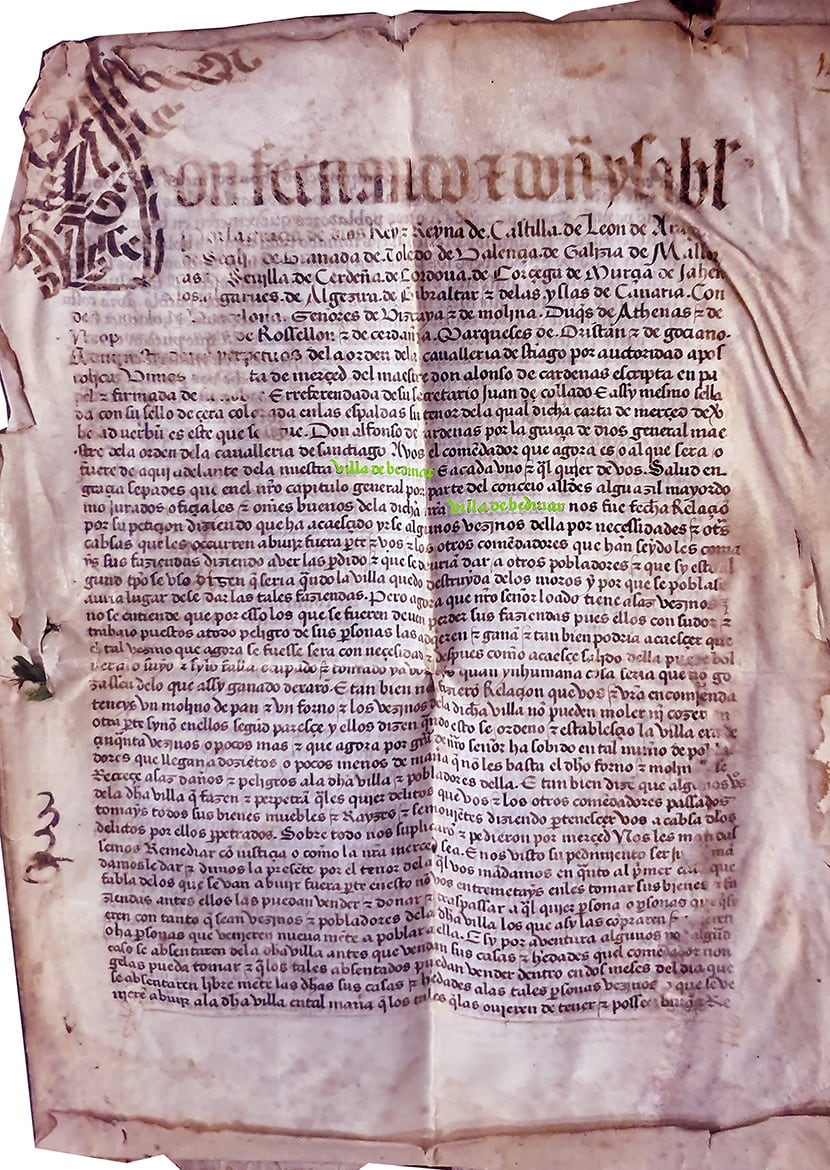 don fernando ⁊ doñ ysabl
por la gracia de dios Rey ⁊ Reyna de Castilla de Leon de Arag
de Secilia de Granada de Toledo de Valençia de Galizia de Mallor
cas de Sevilla de Cerdeña de Cordoua de Corçega de Murçia de Jahen
de los algarues de Algezira de Gibraltar ⁊ de las yslas de Canaria Con
de Barcelona Señores de Vizcaya ⁊ de molina Duq̃s de Athenas ⁊ de
Neop de Rossellon ⁊ de cerdania Marqueses de Oristan ⁊ de goçiano
Administradores perpetuos de la orden de la cauallería de st̃iago por auctoridad apos
tolica Vimos ta de merçed del maestre don alonso de cardenas escripta en pa
pel ⁊ firmada de su nonbre E rreferendada de su secretario Juan de collado E assy mesmo sella
da con su sello de çera colorada en las espaldas su tenor de la qual dicha carta de merçed de v̾
be ad verbũ es este que se sigue. Don alfonso de cardenas por la graçia de dios general mae
stre de la orden de la caualleria de sanctiago A vos el comẽdador que agora es o al que sera o
fuere de aqui adelante de la nuestra villa de bedmar E a cada vno ⁊ q̃l quier de vos. Salud en
graçia sepades que en el nr̃o capitulo general por parte del conceio all̃des alguazil mayordo
mo jurados ofiçiales ⁊ om̃es buenos de la dicha nr̃a villa de bedmar nos fue fecha Relaçiõ
por su petiçion diziendo que ha acaesçido yrse algunos vezinos della por necessidades ⁊ otr̃s
cabsas que les occurren a biuir fuera p̱te ⁊ vos ⁊ los otros comẽdadores que han seydo les toma
ys sus faziendas diziendo aver las p̱dido ⁊ que se deurian dar a otros pobladores ⁊ que sy esto al
gund tp̃o se vso dizen q̃ seria q̃ndo la villa quedo destruyda de los moros y por que se poblase
auria lugar de se dar las tales faziendas. Pero agora que nr̃o señor loado tiene asaz vezinos
no se entiende que por esso los que se fueren deuen perder sus faziendas pues ellos con sudor ⁊
trabaio puestos a todo peligro de sus p̱sonas las adqueren ⁊ ganã ⁊ tan bien podria acaesçer que
el tal vezino que agora se fuesse sera con neçesidad ⁊ despues como acaesçe salido della puede bol
ver a lo suyo ⁊ sy lo falla ocupado ⁊ tomado ya quan ynhumana cosa seria que no go
zassen delo que assy ganado dexarõ. E tan bien nos fizierõ Relaçion que vos ⁊ vr̃a encomienda
teneys vn molino de pan ⁊ vn forno ⁊ los vezinos de la dicha villa nõ pueden moler ni cozer en
otra p̱te synõ en ellos segũd paresçe y ellos dizen q̃ndo esto se ordeno ⁊ establesçio la villa era de
çinq̃nta vezinos o pocos mas ⁊ que agora por gr̃a de nr̃o señor ha sobido en tal num̃o de pobla
dores que llegan a dozietos o pocos menos de manã q̃ no les basta el dho forno ⁊ molin se
Recreçe asaz daños ⁊ peligros a la dha villa ⁊ pobladores della. E tan bien dize que algunos v̾os
de la dha villa q̃ fazen ⁊ perpetrã q̃les quier delitos que vos ⁊ los otros comẽdadores passados
tomays todos sus bienes muebles ⁊ Rayzes ⁊ semouiẽtes diziendo pertenesçer vos a cabsa dlos
delictos por ellos p̱petrados. Sobre todo nos suplicarõ ⁊ pedieron por merçed Nos les mandas
semos Remediar cõ iustiçia o como la nr̃a merçed sea. E nos visto su pedimiento ser ju
damos le dar ⁊ dimos la presẽte por el tenor de la q̃l vos mãdamos en q̃nto al p̱mer que
fabla delos que se van a biuir fuera p̱te en esto nõ vos entremetays en les tomar sus bienes ⁊ fa
ziendas antes ellos las puedan vender ⁊ donar ⁊ traspassar a q̃l quier p̱sona o p̱sonas que q̃si
eren con tanto q̃ sean vezinos ⁊ pobladores de la dha villa los que asy las cõpraren
o ha p̱sonas que venieren nueua mẽte a poblar a ella. E sy por aventura algunos algũd
caso se absentaren de la dha villa antes que vendan sus casas ⁊ hedades quel comẽdador non
gelas pueda tomar ⁊ q̃ los tales absentados puedan vender dentro en dos meses del dia que
se absentaren libre mẽte las dhas sus casas ⁊ hedades a las tales p̱sonas vezinos que se ve
niere a biuir a la dha villa en tal manã q̃ los tales q̃ las ouieren de tener ⁊ posse